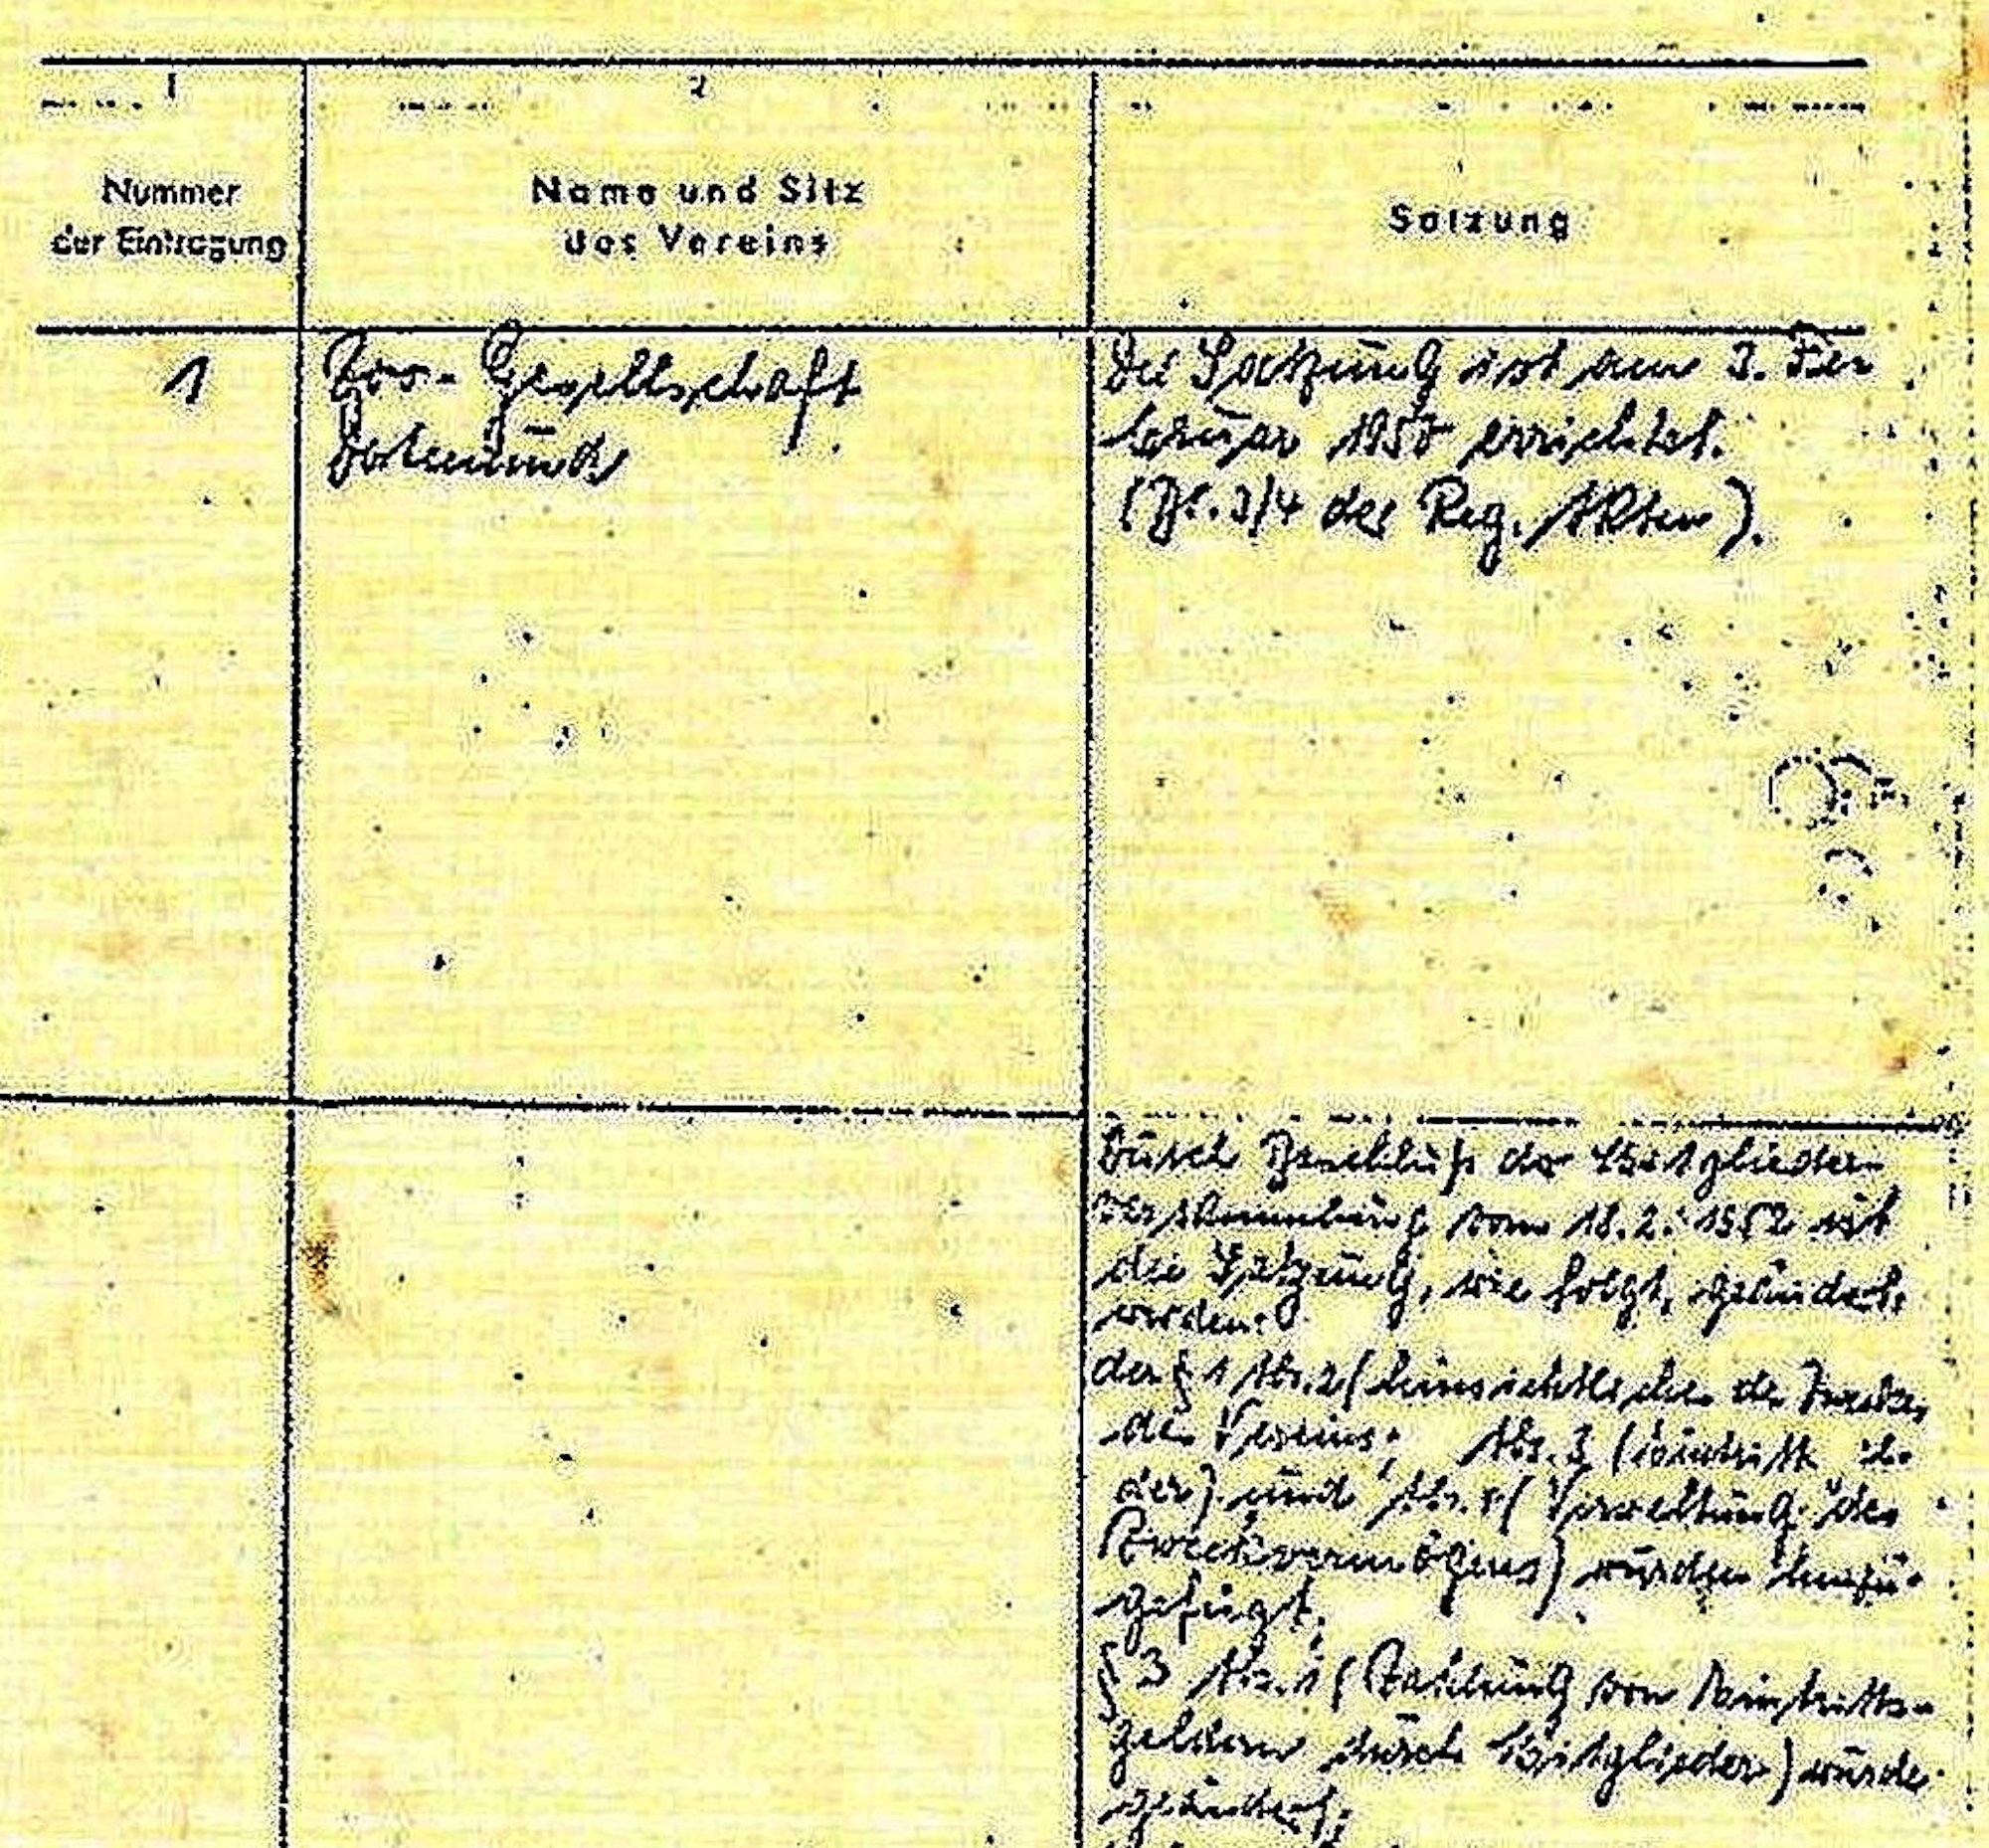 1
2
Nummer
der Eintragung
Name und Sitz
des Vereins
Satzung
1
Zoo-Gesellschaft
Dortmund
Die Satzung ist am 3. Fe-
bruar 1950 errichtet.
(Bl. 3/4 der Reg. Akten).
Durch Beschluß der Mitglieder-
versammlung vom 18.2.1952 ist
die Satzung, wie folgt, geändert
worden:
der § 1 Abs. 2 (hinsichtlich des Zweckes
des Vereins; Abs. 3 (
der) und Abs. (Verwaltung des
Zweckvermögens) wurden hinzu-
gefügt;
§ 3 Abs. 1 (Zahlung von Eintritts-
geldern durch Mitglieder) wurde
geändert;